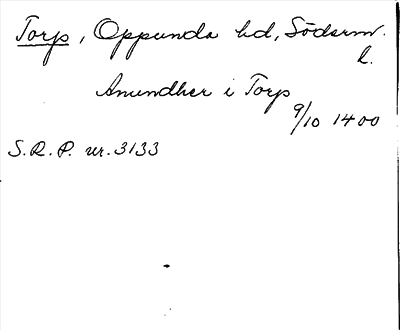 Torp, Oppunda hd, Söderm.
l.
Anundher i Torp
9/10 1400
S.R.P. nr. 3133